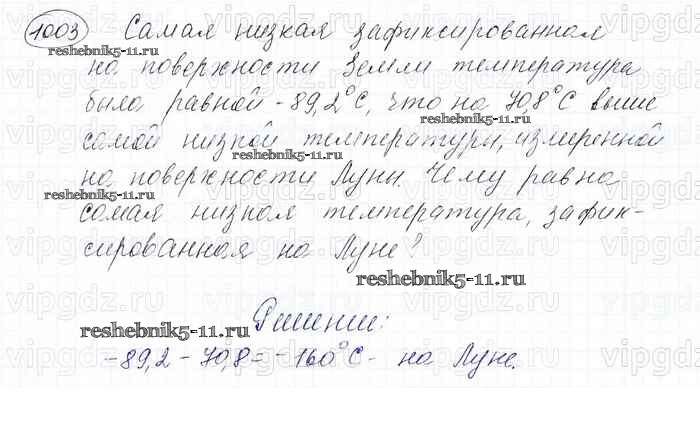 1003 Самая низкая зафиксированная
reshebnik5-11.ru
на поверхности Земли температура
была равной -89,2°С, что на 70,8°С выше
reshebnik5-11.ru
самой низкой температуры, измеренной
reshebnik5-11.ru
на поверхности Луны. Чему равна
reshebnik5-11.ru
самая низкая температура, зафик-
сированная на Луне?
reshebnik5-11.ru
Решение:
reshebnik5-11.ru
-89,2 - 70,8 = -160°С - на Луне.
vipgdz.ru